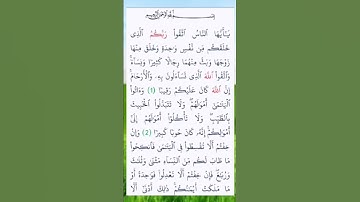 بِسْمِ ٱللَّهِ ٱلرَّحْمَٰنِ ٱلرَّحِيمِ
يَٰٓأَيُّهَا ٱلنَّاسُ ٱتَّقُوا۟ رَبَّكُمُ ٱلَّذِى
خَلَقَكُم مِّن نَّفْسٍ وَٰحِدَةٍ وَخَلَقَ مِنْهَا
زَوْجَهَا وَبَثَّ مِنْهُمَا رِجَالًا كَثِيرًا وَنِسَآءً
وَٱتَّقُوا۟ ٱللَّهَ ٱلَّذِى تَسَآءَلُونَ بِهِۦ وَٱلْأَرْحَامَ
إِنَّ ٱللَّهَ كَانَ عَلَيْكُمْ رَقِيبًا (1) وَءَاتُوا۟
ٱلْيَتَٰمَىٰٓ أَمْوَٰلَهُمْ وَلَا تَتَبَدَّلُوا۟ ٱلْخَبِيثَ
بِٱلطَّيِّبِ وَلَا تَأْكُلُوٓا۟ أَمْوَٰلَهُمْ إِلَىٰٓ
أَمْوَٰلِكُمْ إِنَّهُۥ كَانَ حُوبًا كَبِيرًا (2) وَإِنْ
خِفْتُمْ أَلَّا تُقْسِطُوا۟ فِى ٱلْيَتَٰمَىٰ فَٱنكِحُوا۟
مَا طَابَ لَكُم مِّنَ ٱلنِّسَآءِ مَثْنَىٰ وَثُلَٰثَ
وَرُبَٰعَ فَإِنْ خِفْتُمْ أَلَّا تَعْدِلُوا۟ فَوَٰحِدَةً أَوْ
مَا مَلَكَتْ أَيْمَٰنُكُمْ ذَٰلِكَ أَدْنَىٰٓ أَلَّا